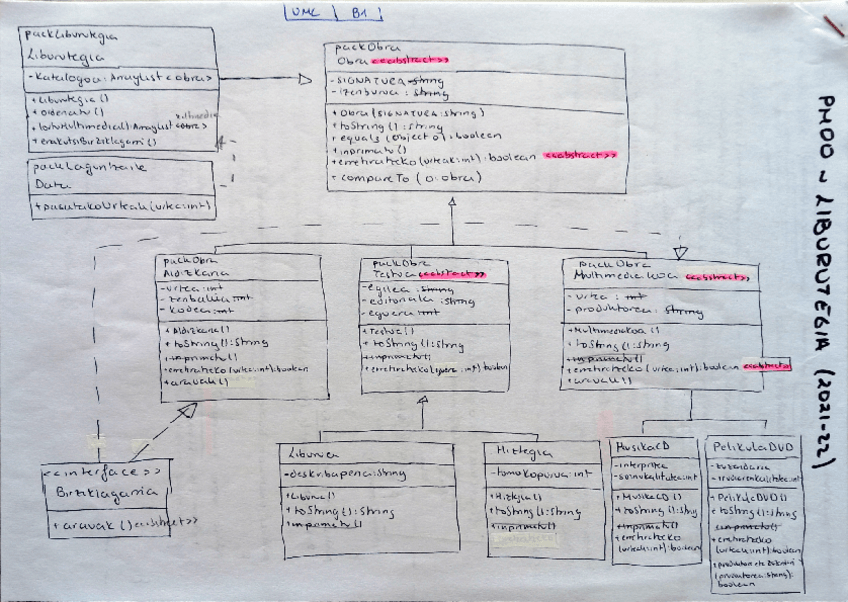 UML B1
PMOO ~ LIBURUTEGIA (2021-22)
packLiburutegia
Liburutegia
-Katalogoa: ArrayList<obra>
+Liburutegia()
+ordenatu()
+erakutsiBirziklagarri()
packLaguntzaile
Data
+pasatakoUrteak(urtea:int)
packObra
Obra <<abstract>>
-SIGNATURA: string
-izenburua: string
+Obra(SIGNATURA:string)
+toString(): string
+equals(object o): boolean
+inprimatu()
+erreihzateko(urteak:int): boolean <<abstract>>
+compareTo(o:obra)
packObra
Aldizkaria
-urtea: int
-zenbakia: int
-kodea: int
+Aldizkaria()
+toString(): string
+inprimatu()
+aravak()
packObra
Testua <<abstract>>
-egilea: string
-editoriala: string
-eguera: int
+Testua()
+toString(): string
+inprimatu()
packObra
Multimediakoa <<abstract>>
-urtea: int
-produktorea: string
+Multimediakoa()
+toString(): string
+inprimatu()
+aravak()
<<interface>>
Birziklagarria
+aravak() <<abstract>>
Liburua
-deskribapena: string
+Liburua()
+toString(): string
+inprimatu()
Hiztegia
-tomokopurua: int
+Hiztegia()
+toString(): string
+inprimatu()
MusikaCD
-interpretea
-soinukalitatea: int
+MusikaCD()
+toString(): string
+inprimatu()
(urteak:int): boolean
PelikulaDVD
-zuzendaria
-irudiarenkalitatea: int
+PelikulaDVD()
+toString(): string
+inprimatu()
(urteak:int): boolean
(produktorea:string):
boolean